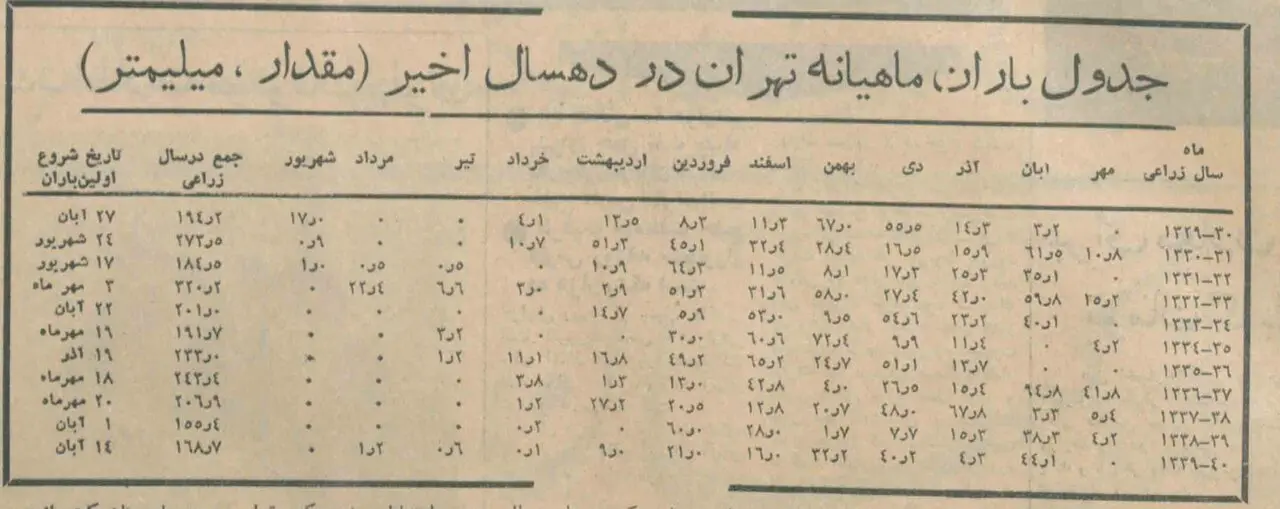 جدول باران ماهیانه تهران در دهسال اخیر (مقدار ، میلیمتر)
ماه مهر ابان آذر دی بهمن اسفند فروردین اردیبهشت خرداد تیر مرداد شهریور جمع درسال تاریخ شروع
سال زراعی زراعی اولین‌باران
۱۳۲۹-۳۰ ۰ ۳ر۲ ۱۴ر۳ ۵۵ر۵ ۶۷ر۰ ۱۱ر۳ ۸ر۳ ۱۳ر۵ ۴ر۱ ۰ ۰ ۱۷ر۰ ۱۹۴ر۲ ۲۷ آبان
۱۳۳۰-۳۱ ۱۰ر۸ ۶۱ر۵ ۱۵ر۹ ۱۶ر۵ ۲۸ر۴ ۳۲ر۴ ۴۵ر۱ ۵۱ر۳ ۱۰ر۷ ۰ ۰ ۰ر۹ ۲۷۳ر۵ ۲۴ شهریور
۱۳۳۱-۳۲ ۰ ۳۵ر۱ ۲۵ر۳ ۱۷ر۳ ۸ر۱ ۱۱ر۵ ۶۴ر۳ ۱۰ر۹ ۰ ۰ر۵ ۰ر۵ ۱ر۰ ۱۸۴ر۵ ۱۷ شهریور
۱۳۳۲-۳۳ ۱۵ر۲ ۵۹ر۸ ۴۲ر۰ ۲۷ر۴ ۵۸ر۰ ۳۱ر۶ ۵۱ر۳ ۲ر۹ ۳ر۰ ۶ر۶ ۲۲ر۴ ۰ ۳۲۰ر۲ ۳ مهر ماه
۱۳۳۳-۳۴ ۰ ۴۰ر۱ ۲۳ر۲ ۵۴ر۶ ۹ر۵ ۵۳ر۰ ۵ر۹ ۱۴ر۷ ۰ ۰ ۰ ۰ ۲۰۱ر۰ ۲۲ آبان
۱۳۳۴-۳۵ ۴ر۲ ۰ ۱۱ر۴ ۹ر۹ ۷۲ر۴ ۶۰ر۶ ۳۰ر۰ ۰ ۰ ۳ر۲ ۰ ۰ ۱۹۱ر۷ ۱۹ مهرماه
۱۳۳۵-۳۶ ۰ ۰ ۱۳ر۷ ۵۱ر۱ ۲۴ر۷ ۶۵ر۲ ۴۹ر۲ ۱۶ر۸ ۱۱ر۱ ۱ر۲ ۰ ۰ ۲۳۳ر۰ ۱۹ آذر
۱۳۳۶-۳۷ ۴۱ر۸ ۹۴ر۸ ۱۵ر۴ ۲۶ر۵ ۴ر۰ ۴۲ر۸ ۱۳ر۰ ۱ر۳ ۳ر۸ ۰ ۰ ۰ ۲۴۳ر۴ ۱۸ مهرماه
۱۳۳۷-۳۸ ۵ر۴ ۳ر۳ ۶۷ر۸ ۴۸ر۰ ۲۰ر۷ ۱۲ر۸ ۲۰ر۵ ۲۷ر۲ ۱ر۲ ۰ ۰ ۰ ۲۰۶ر۹ ۲۰ مهرماه
۱۳۳۸-۳۹ ۴ر۲ ۳۸ر۳ ۱۵ر۳ ۷ر۷ ۱ر۷ ۲۸ر۰ ۶۰ر۰ ۰ ۰ر۲ ۰ ۰ ۰ ۱۵۵ر۴ ۱ آبان
۱۳۳۹-۴۰ ۰ ۴۴ر۱ ۴ر۳ ۴۰ر۲ ۳۲ر۲ ۱۶ر۰ ۲۱ر۰ ۹ر۰ ۰ر۱ ۰ر۶ ۱ر۲ ۰ ۱۶۸ر۷ ۱۴ آبان